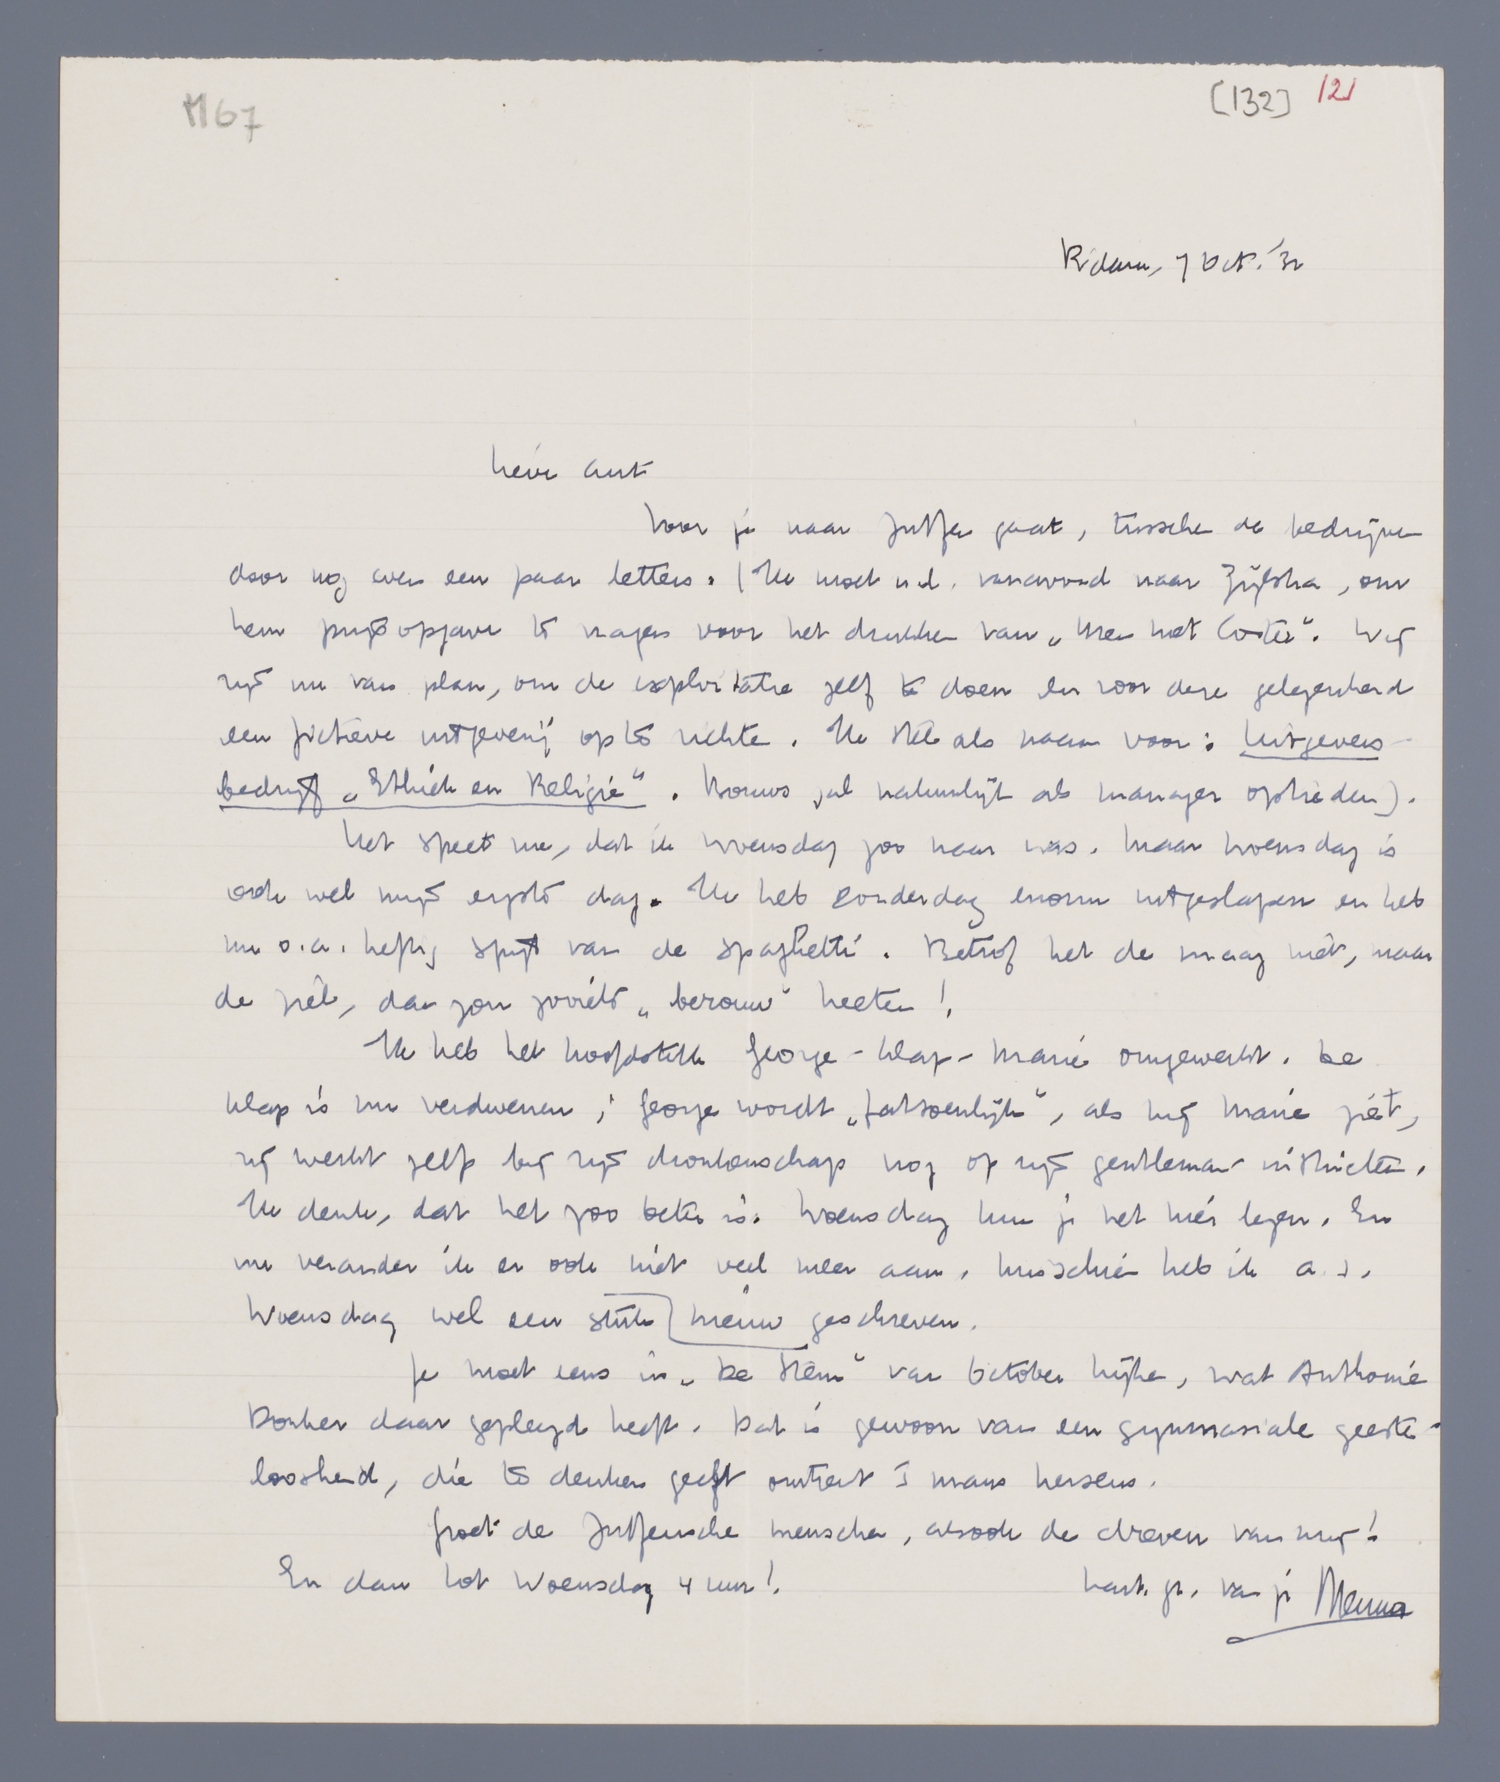 M67
[132] 121
R'dam, 7 Oct. '32
Lieve Ant
Voor je naar Zutfen gaat, tusschen de bedrijven
door nog even een paar letters. (Ik moet n.l. vanavond naar Zijlstra, om
hem prijsopgave te vragen voor het drukken van „Men met Coster". Wij
zijn nu van plan, om de exploitatie zelf te doen en voor deze gelegenheid
een fictieve uitgeverij op te richten. Ik stel als naam voor: Uitgevers-
bedrijf „Ethiek en Religie". Bouws zal natuurlijk als manager optreden).
Het speet me, dat ik Woensdag zoo naar was. Maar Woensdag is
ook wel mijn ergste dag. Ik heb Donderdag enorm uitgeslapen en heb
nu o.a. heftig spijt van de spaghetti. Betrof het de maag niet, maar
de ziel, dan zou zooiets „berouw" heeten!
Ik heb het hoofdstuk George-klap-Marie omgewerkt. De
klap is nu verdwenen; George wordt „fatsoenlijk", als hij Marie ziet,
zij werkt zelfs bij zijn dronkenschap nog op zijn gentleman-instincten.
Ik denk, dat het zoo beter is. Woensdag kun je het hier lezen. En
nu verander ik er ook niet veel meer aan. Misschien heb ik a.s.
Woensdag wel een stuk nieuw geschreven.
Je moet eens in „De Stem" van October kijken, wat Anthonie
Donker daar gepleegd heeft. Dat is gewoon van een gymnasiale geeste-
loosheid, die te denken geeft omtrent 's mans hersens.
Groet de Zutfensche menschen, alsook de dreven van mij!
En dan tot Woensdag 4 uur!
hart. gr. van je Menno